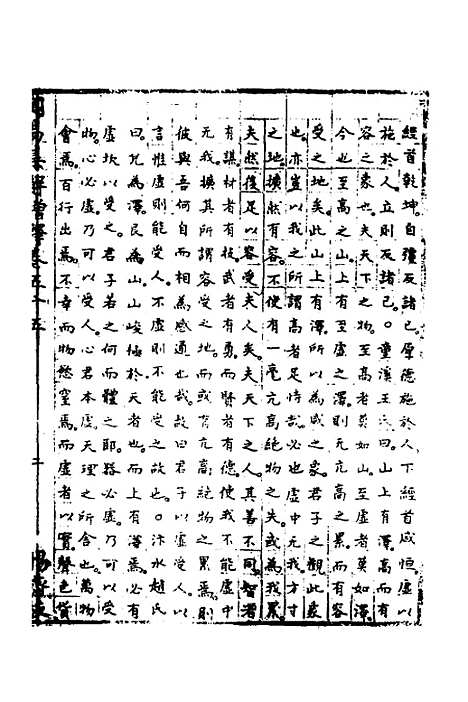 經首乾坤自彊反諸已厚德施於人下經首咸恒虛以
施於人立則反諸已○童溪王氏曰山上有澤高而有
容之象也夫天下之物至高者莫如山至虛者莫如澤
今也至高之山上有至虛之澤則无亢高之累而有容
受之地矣此山上有澤所以為咸之象君子之觀此象
也亦豈以我之所謂高者足恃哉必也虛中无我方寸
之地擴然有容不使有一毫亢高絶物之失或為我累
夫然後足以容受夫人矣夫天下之人其善不同智者
有謀材者有技武者有勇而賢者有德使我不能虛中
无我擴其所謂容受之地而或有高絶物之累焉則
彼與吾何自而相為感通也哉故曰君子以虛受人以
言惟虛則能受人不虛則不能受之故也○汴水趙氏
曰兌為澤艮為山山峻極於天者也而上有澤焉必有
虛坎以受之君子若之何而體之耶器必虛乃可以受
物心必虛乃可以受人心君本虛天理之所含也萬物
會焉百行出焉不幸而物慾窒焉而虛者以實聲色貨